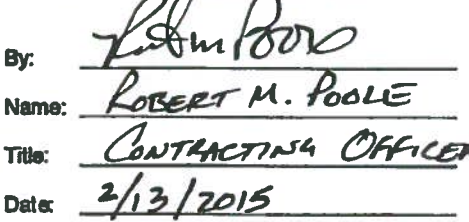 By:
Name: ROBERT M. POOLE
Title: CONTRACTING OFFICER
Date: 2/13/2015